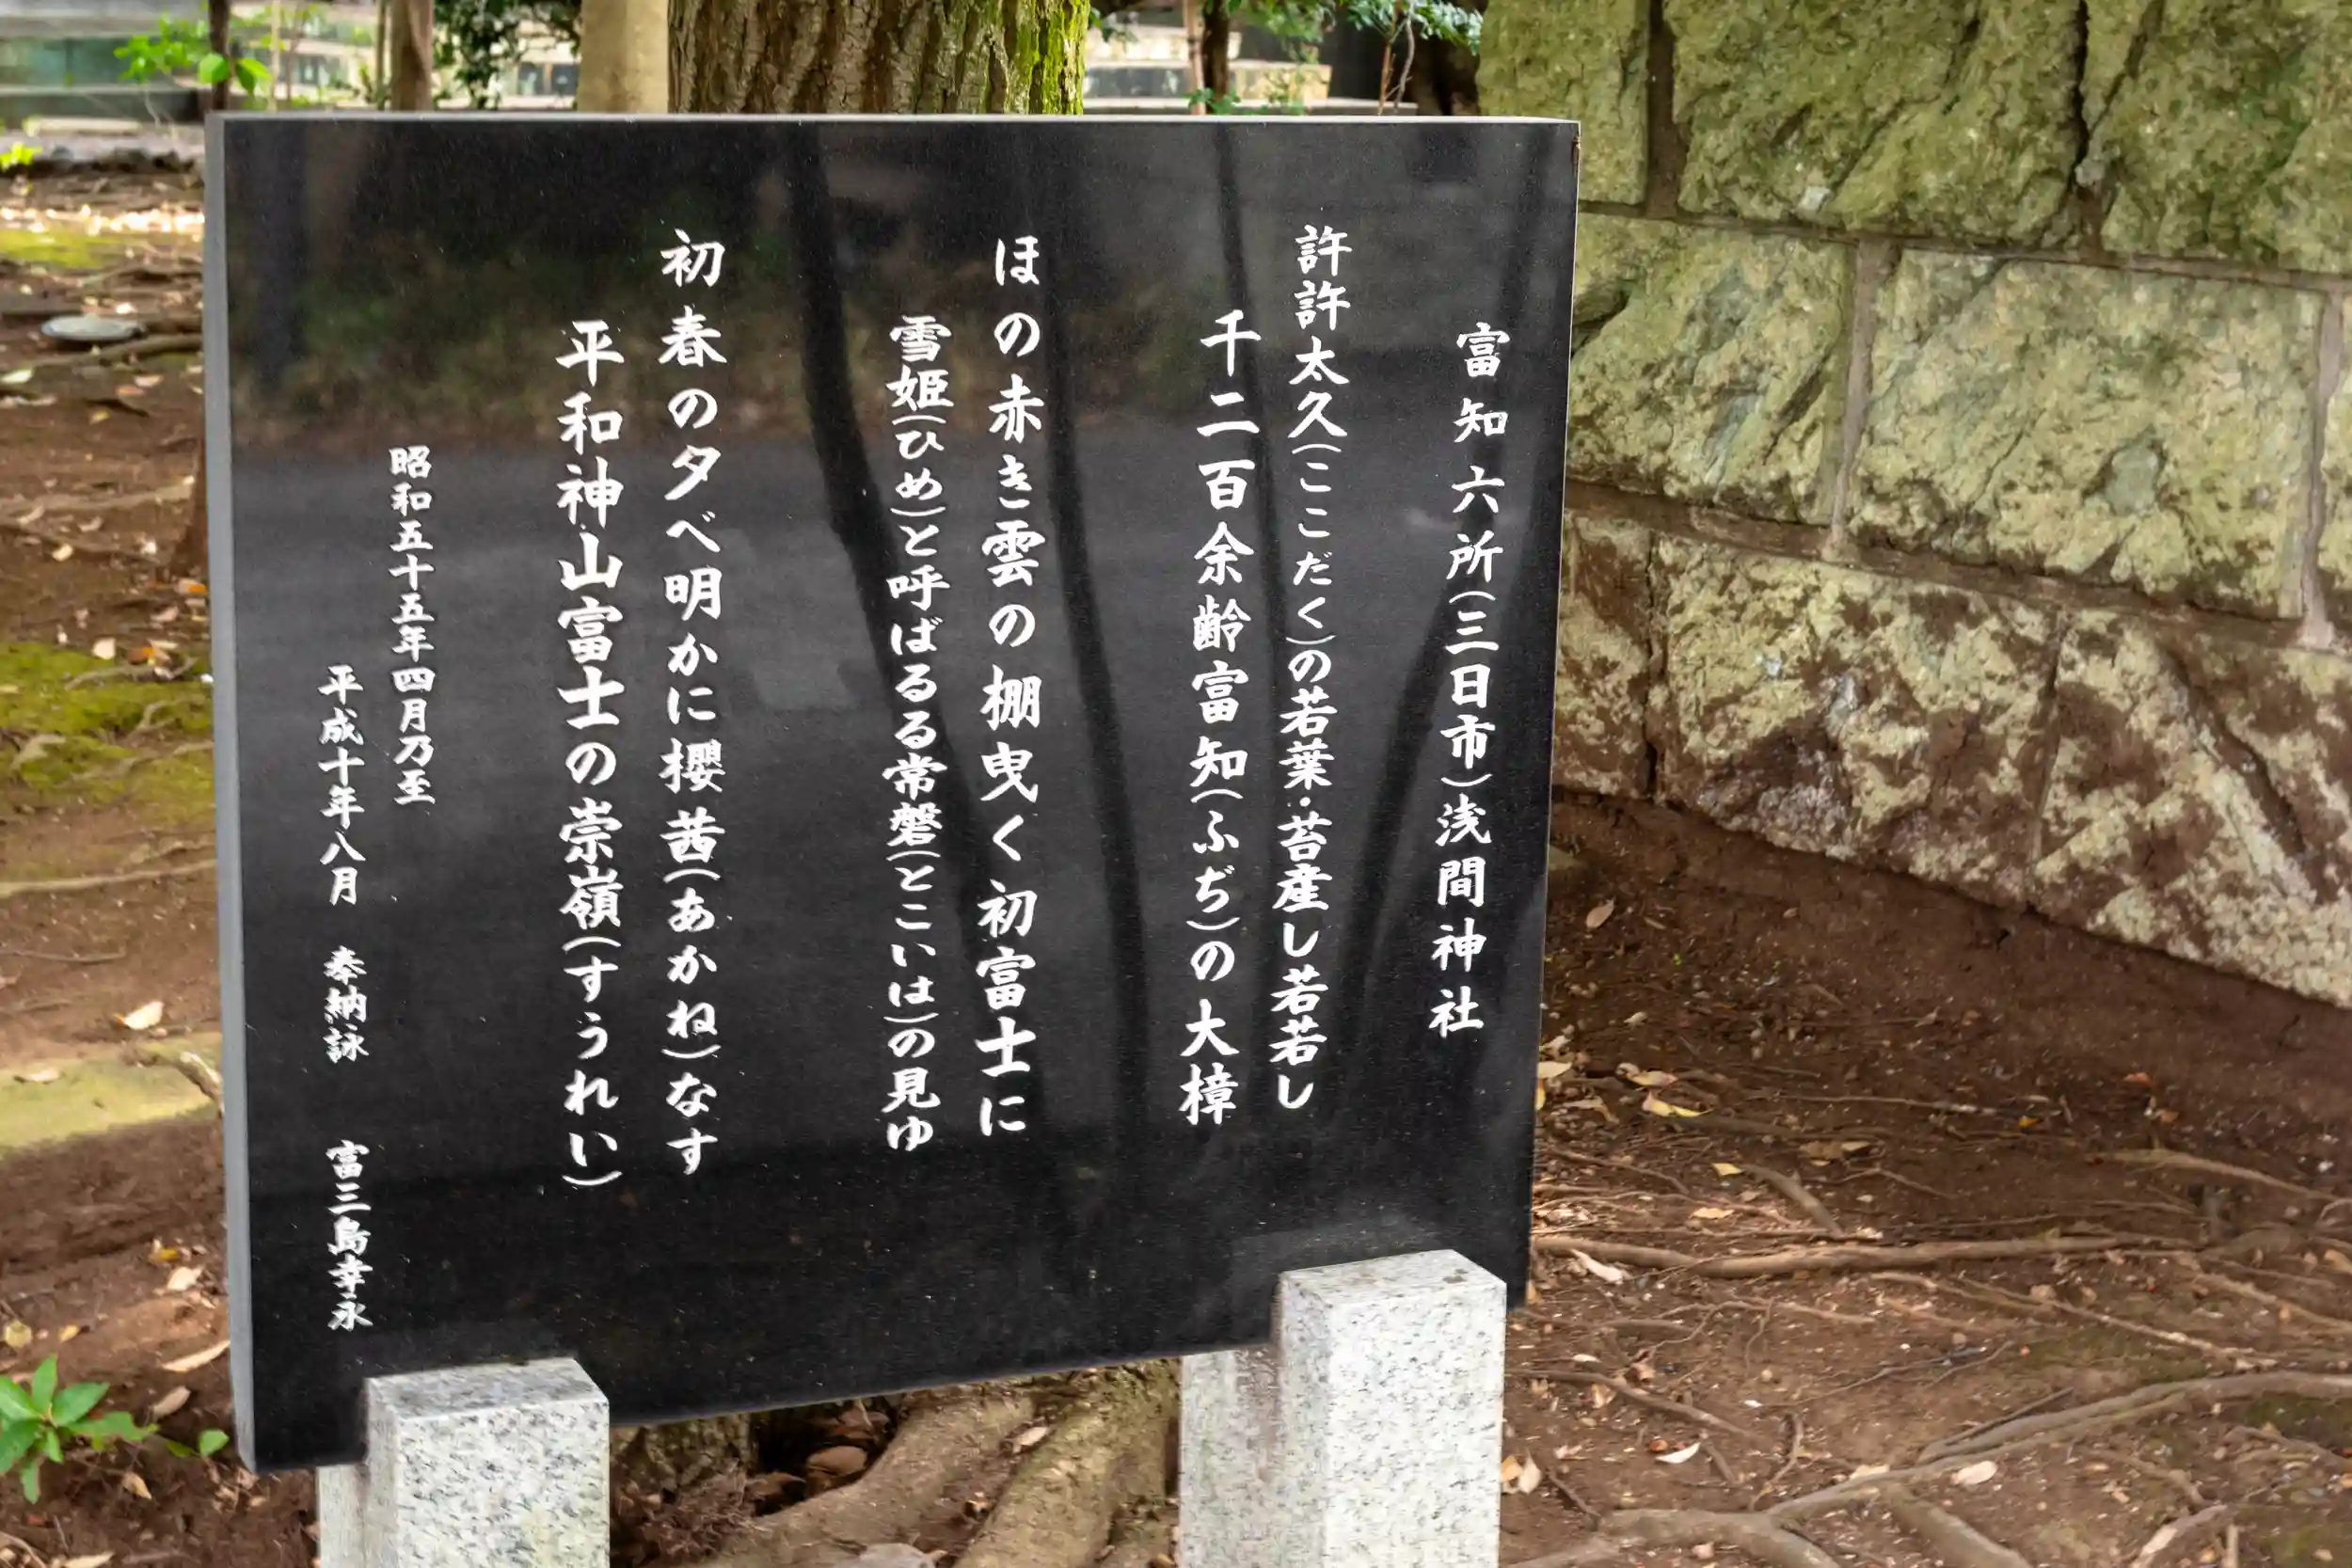 富知六所(三日市)浅間神社
許許太久(ここだく)の若葉・苔産し若若し
千二百余齢富知(ふぢ)の大樟
ほの赤き雲の棚曳く初富士に
雪姫(ひめ)と呼ばるる常磐(とこいは)の見ゆ
初春の夕べ明かに櫻茜(あかね)なす
平和神山富士の崇嶺(すうれい)
昭和五十五年四月乃至
平成十年八月 奉納詠 富三島幸永